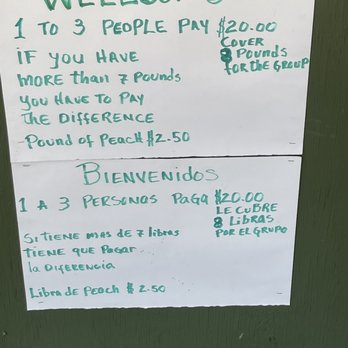 1 TO 3 PEOPLE PAY $20.00
COVER
8 Pounds
FOR the GROUP
IF YOU HAVE
MORE than 7 Pounds
YOU HAVE TO PAY
THE DIFFERENCE
Pound of PEACH $2.50
BIENVENIDOS
1 A 3 PERSONAS PAGA $20.00
LE CUBRE
8 LIBRAS
POR EL GRUPO
SI TIENE MAS DE 7 libras
TIENE QUE PAGAR
la DIFERENCIA
LIBRA DE PEACH $ 2.50